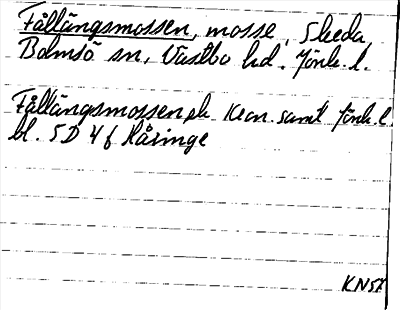 Fållängsmossen, mosse, Skeda
Bolmsö sn, Västbo hd. Jönk. l.
Fållängsmossen ek Kron. samt Jönk. l.
bl. 5D 4f Håringe
KN57